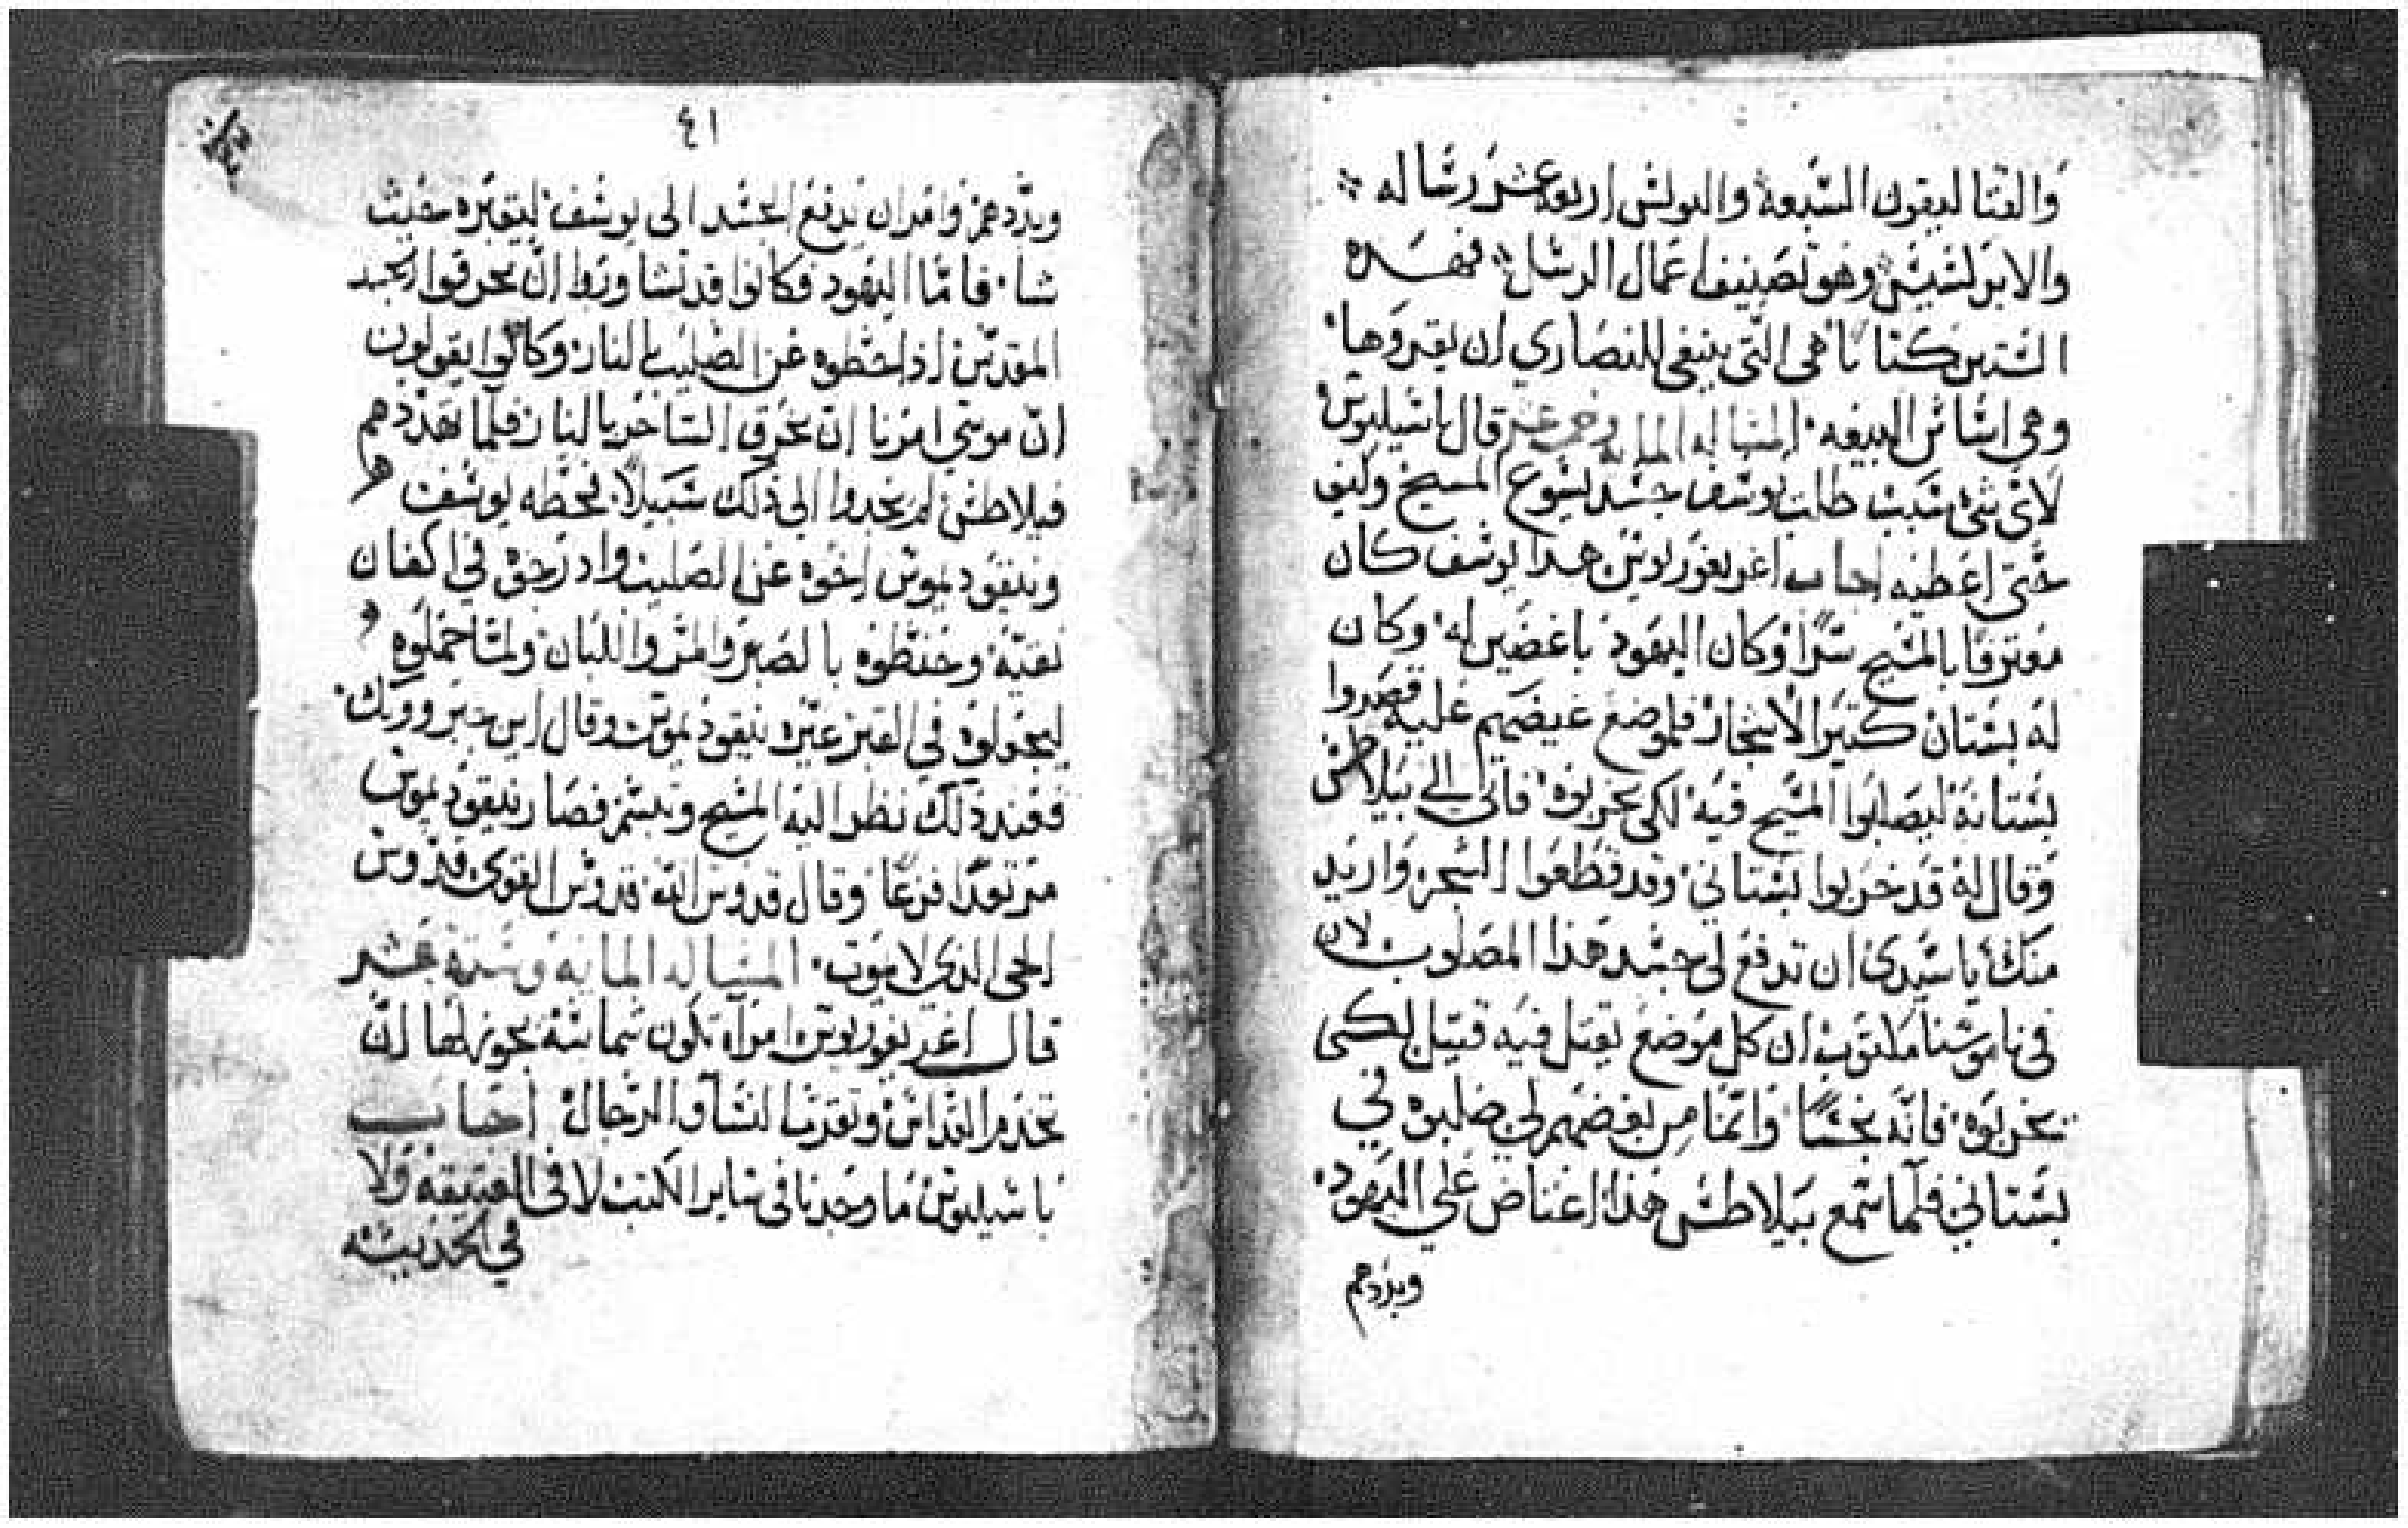 والقتاليقون السبعة والبولس اربعة عشر رساله
والابركسيس وهو تصنيف اعمال الرسل فهذه
الستين كتابا هي التي ينبغي للنصاري ان يقروها
وهي اساس البيعه المساله المايه وخمسة عشر قال باسيليوس
لاي شي سبب طلب يوسف جسد يسوع المسيح وكيف
حتى اعطيه اجاب اغريغوريوس هذا يوسف كان
معترفا بالمسيح سرا وكان اليهود باغضين له وكان
له بستان كتير الاشجار فلموضع غيضهم عليه قصدوا
بستانه ليصلبوا المسيح فيه لكي يخربوه فاتى الى بيلاطس
وقال له قد خربوا بستاني وقد قطعوا الشجر واريد
منك يا سيدي ان تدفع لي جسد هذا المصلوب لان
في ناموسنا مكتوب ان كل موضع يقتل فيه قتيل لكي
يخربوه فانه نجسا وانما من بغضهم لي صلبوه في
بستاني فلما سمع بيلاطس هذا اغتاض علي اليهود
وبزدهم
٤١
وبزدهم وامر ان يدفع الجسد الى يوسف ليقبره حيث
شا فاما اليهود فكانوا قد تشاوروا ان يحرقوا الجسد
المقدس اذا حطوه عن الصليب بالنار وكانوا يقولون
ان موسى امرنا ان نحرق الساحر بالنار فلما تهددهم
فيلاطس لم يجدوا الى ذلك سبيلا فحطه يوسف هو
ونيقوديموس اخوه عن الصليب وادرجوه في اكفان
نقيه وحنطوه بالصبر والمر واللبان ولما حملوه
ليجعلوه في القبر عيره نيقوديموس وقال اين جبروتك
فعند ذلك نظر اليه المسيح وتبسم فصار نيقوديموس
مرتعدا فزعا وقال قدوس الله قدوس القوي قدوس
الحي الذي لا يموت المساله المايه وستة عشر
قال اغريغوريوس امراه تكون شماسه يجوز لها ان
تخدم القداس وتقدم النسا والرجال اجاب
باسيليوس ما وجدنا في ساير الكتب لا في العتيقه ولا
في الحديثه